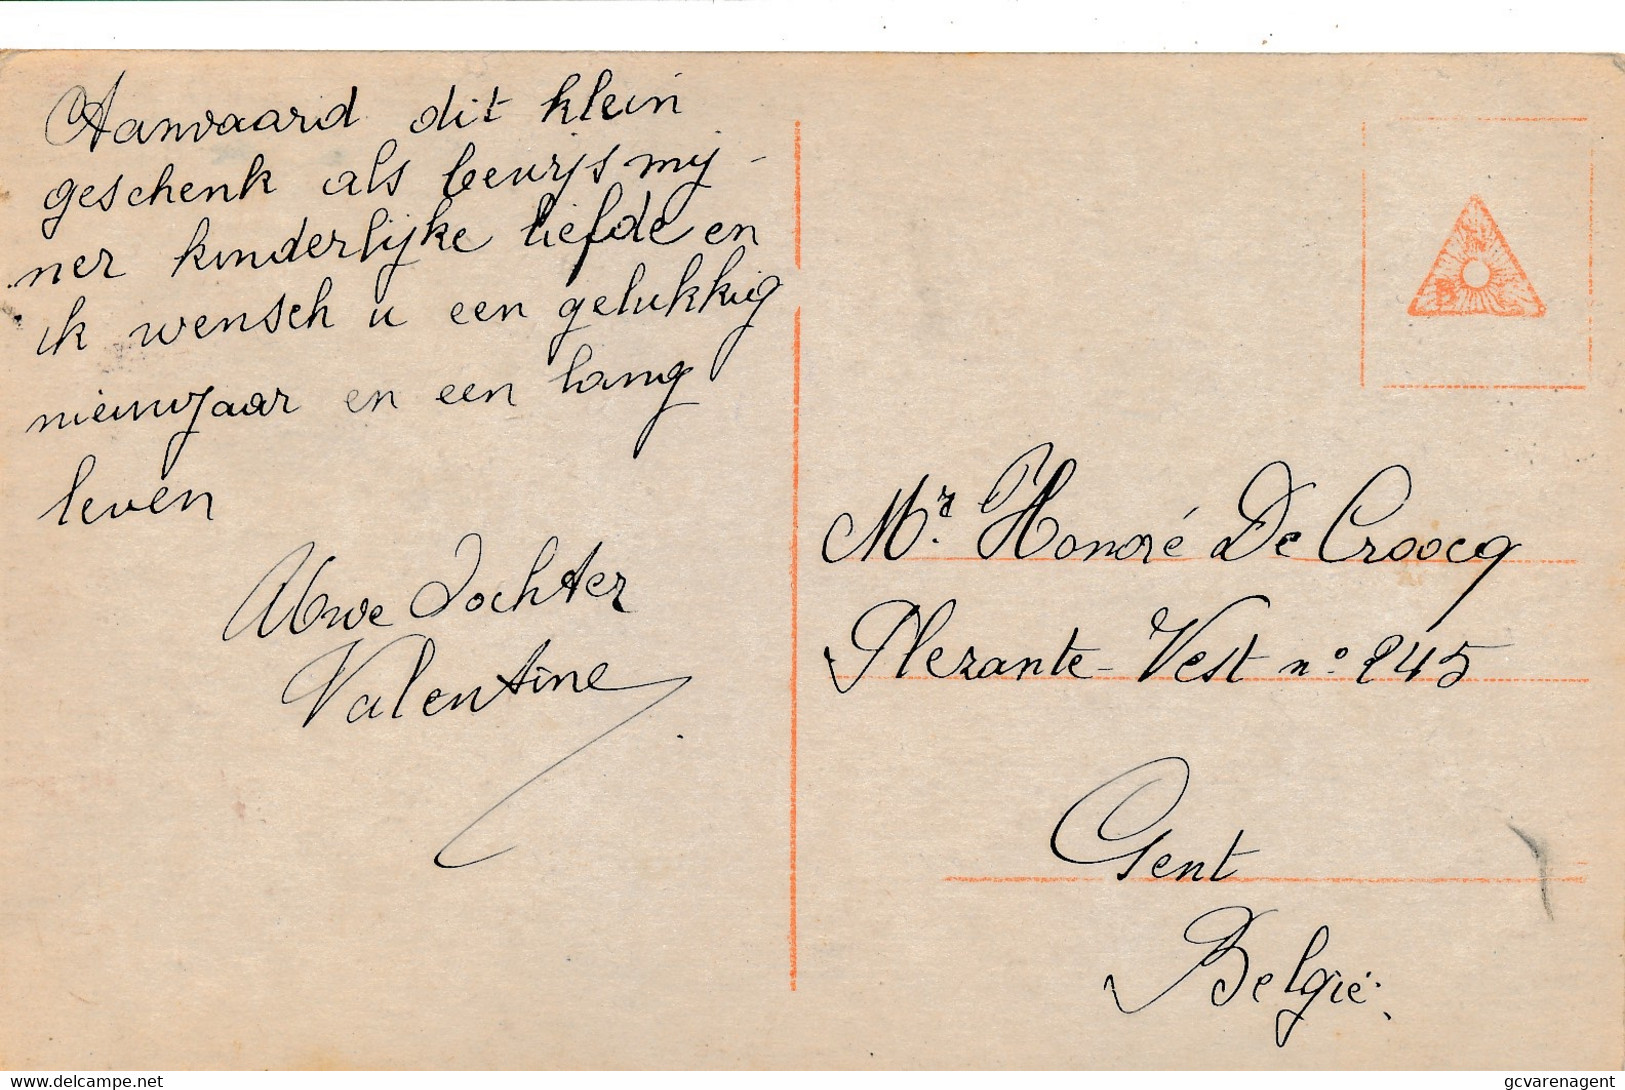 Aanvaard dit klein
geschenk als bewijs mij-
ner kinderlijke liefde en
ik wensch u een gelukkig
nieuwjaar en een lang
leven
Uwe Dochter
Valentine
Mr. Honoré De Croocq
Plezante-Vest no 245
Gent
België.
delcampe.net
gcvarenagent